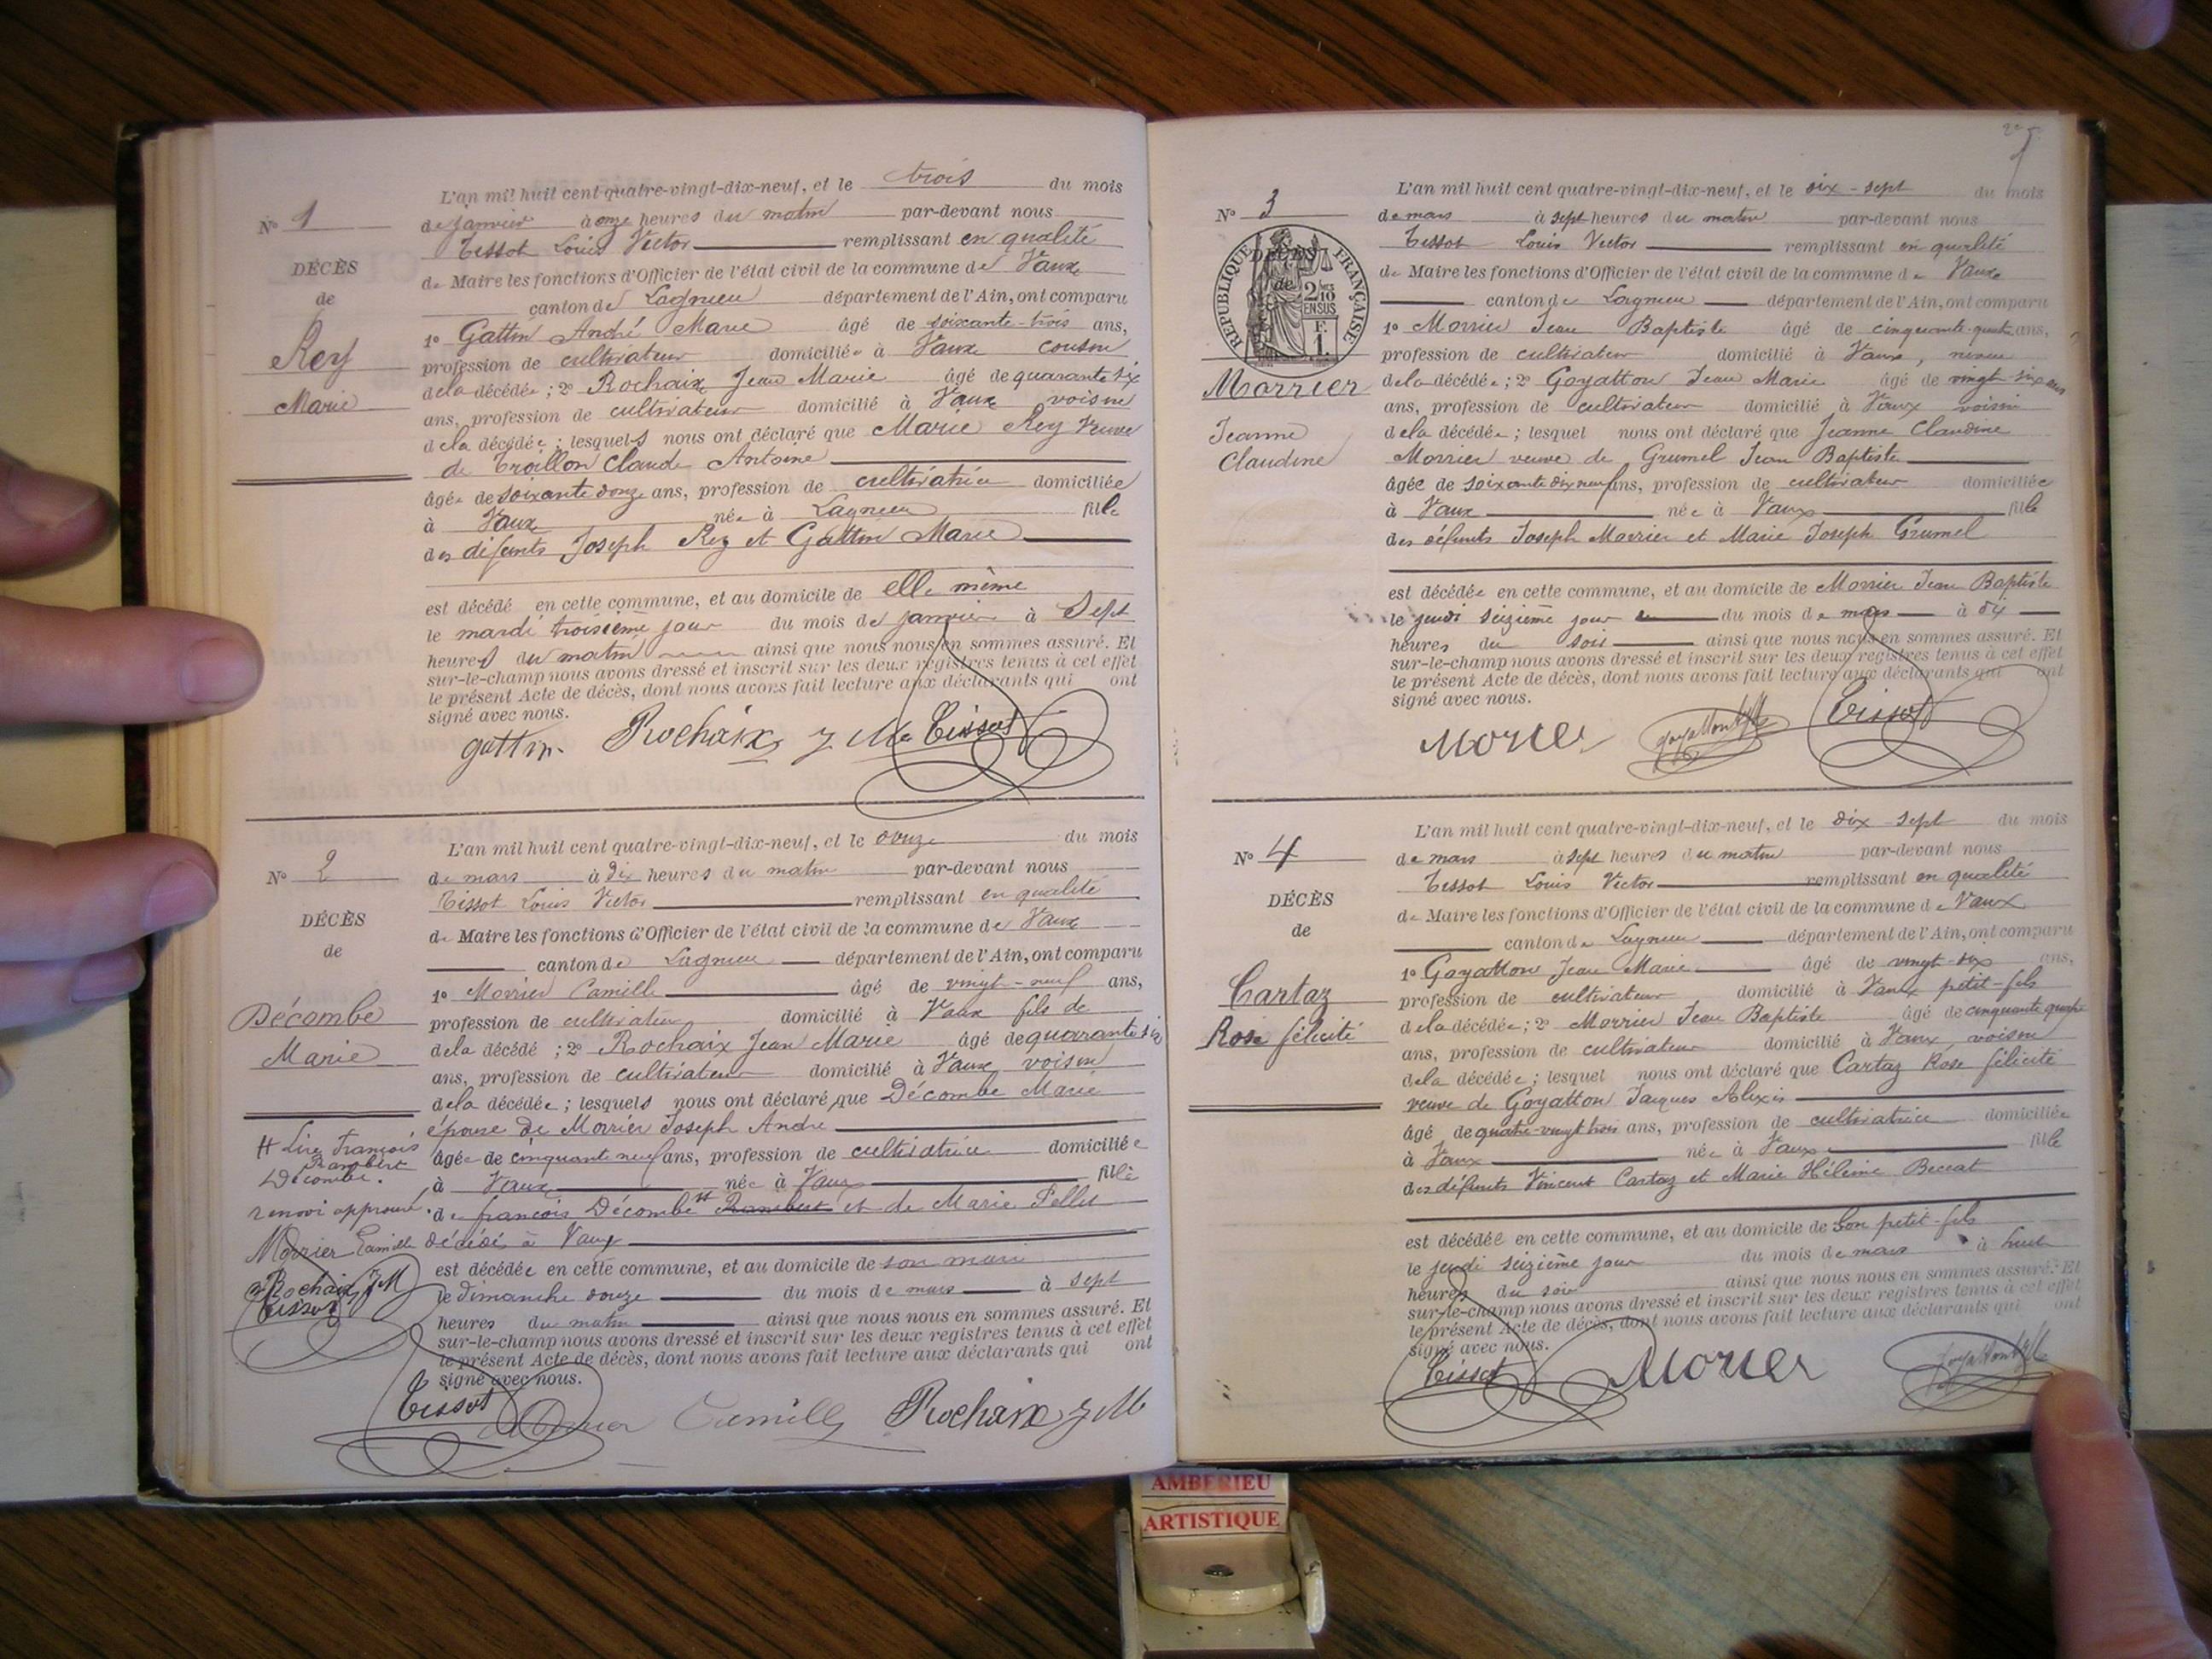 L'an mil huit cent quatre-vingt-dix-neuf, et le trois du mois
No 1
de janvier à onze heures du matin par-devant nous
Tissot Louis Victor remplissant en qualité
DÉCÈS
de Maire les fonctions d'Officier de l'état civil de la commune de Vaux
de
canton de Lagnieu département de l'Ain, ont comparu
1o Gattin André Marie âgé de soixante-trois ans,
Rey
profession de cultivateur domicilié à Vaux cousin
Marie
de la décédée ; 2o Rochaix Jean Marie âgé de quarante six
ans, profession de cultivateur domicilié à Vaux voisin
de la décédée ; lesquels nous ont déclaré que Marie Rey veuve
de Troillon Claude Antoine
âgée de soixante douze ans, profession de cultivatrice domiciliée
à Vaux née à Lagnieu fille
des défunts Joseph Rey et Gattin Marie
est décédé en cette commune, et au domicile de elle même
le mardi troisième jour du mois de janvier à sept
heures du matin ainsi que nous nous en sommes assuré. Et
sur-le-champ nous avons dressé et inscrit sur les deux registres tenus à cet effet
le présent Acte de décès, dont nous avons fait lecture aux déclarants qui ont
signé avec nous.
gattin. Rochaix J M Tissot
L'an mil huit cent quatre-vingt-dix-neuf, et le douze du mois
No 2
de mars à dix heures du matin par-devant nous
Tissot Louis Victor remplissant en qualité
DÉCÈS
de Maire les fonctions d'Officier de l'état civil de la commune de Vaux
de
canton de Lagnieu département de l'Ain, ont comparu
1o Morrier Camille âgé de vingt-neuf ans,
Décombe
profession de cultivateur domicilié à Vaux fils de
Marie
de la décédé ; 2o Rochaix Jean Marie âgé de quarante six
ans, profession de cultivateur domicilié à Vaux voisin
de la décédée ; lesquels nous ont déclaré que Décombe Marie
épouse de Morrier Joseph André
âgée de cinquante neuf ans, profession de cultivatrice domiciliée
à Vaux née à Vaux fille
de françois Décombe # Rambert et de Marie Pellet
décédée à Vaux
# Lire françois
Rambert
Décombe.
renvoi approuvé.
Morrier Camille
Rochaix J M
Tissot
est décédée en cette commune, et au domicile de son mari
le dimanche douze du mois de mars à sept
heures du matin ainsi que nous nous en sommes assuré. Et
sur-le-champ nous avons dressé et inscrit sur les deux registres tenus à cet effet
le présent Acte de décès, dont nous avons fait lecture aux déclarants qui ont
signé avec nous.
Tissot Morrier Camille Rochaix J M
L'an mil huit cent quatre-vingt-dix-neuf, et le dix-sept du mois
No 3
de mars à sept heures du matin par-devant nous
Tissot Louis Victor remplissant en qualité
RÉPUBLIQUE FRANÇAISE
DÉCÈS
de
2/10 EN SUS
F. 1.
de Maire les fonctions d'Officier de l'état civil de la commune de Vaux
canton de Lagnieu département de l'Ain, ont comparu
1o Morrier Jean Baptiste âgé de cinquante-quatre ans,
profession de cultivateur domicilié à Vaux, neveu
Morrier
de la décédée ; 2o Goyatton Jean Marie âgé de vingt-six ans
ans, profession de cultivateur domicilié à Vaux voisin
Jeanne
Claudine
de la décédée ; lesquel nous ont déclaré que Jeanne Claudine
Morrier veuve de Grumel Jean Baptiste
âgée de soixante dix neuf ans, profession de cultivateur domiciliée
à Vaux née à Vaux fille
des défunts Joseph Morrier et Marie Joseph Grumel
est décédée en cette commune, et au domicile de Morrier Jean Baptiste
le jeudi seizième jour du mois de mars à dix
heures du soir ainsi que nous nous en sommes assuré. Et
sur-le-champ nous avons dressé et inscrit sur les deux registres tenus à cet effet
le présent Acte de décès, dont nous avons fait lecture aux déclarants qui ont
signé avec nous.
Morrier Goyatton Tissot
L'an mil huit cent quatre-vingt-dix-neuf, et le dix-sept du mois
No 4
de mars à sept heures du matin par-devant nous
Tissot Louis Victor remplissant en qualité
DÉCÈS
de Maire les fonctions d'Officier de l'état civil de la commune de Vaux
de
canton de Lagnieu département de l'Ain, ont comparu
1o Goyatton Jean Marie âgé de vingt-six ans,
Cartaz
profession de cultivateur domicilié à Vaux petit-fils
Rose félicité
de la décédée ; 2o Morrier Jean Baptiste âgé de cinquante quatre
ans, profession de cultivateur domicilié à Vaux, voisin
de la décédée ; lesquel nous ont déclaré que Cartaz Rose félicité
veuve de Goyatton Jacques Alexis
âgé de quatre-vingt trois ans, profession de cultivatrice domiciliée
à Vaux née à Vaux fille
des défunts Vincent Cartaz et Marie Hélène Beccat
est décédée en cette commune, et au domicile de son petit-fils
le jeudi seizième jour du mois de mars à huit
heures du soir ainsi que nous nous en sommes assuré. Et
sur-le-champ nous avons dressé et inscrit sur les deux registres tenus à cet effet
le présent Acte de décès, dont nous avons fait lecture aux déclarants qui ont
signé avec nous.
Tissot Morrier Goyatton
AMBERIEU
ARTISTIQUE